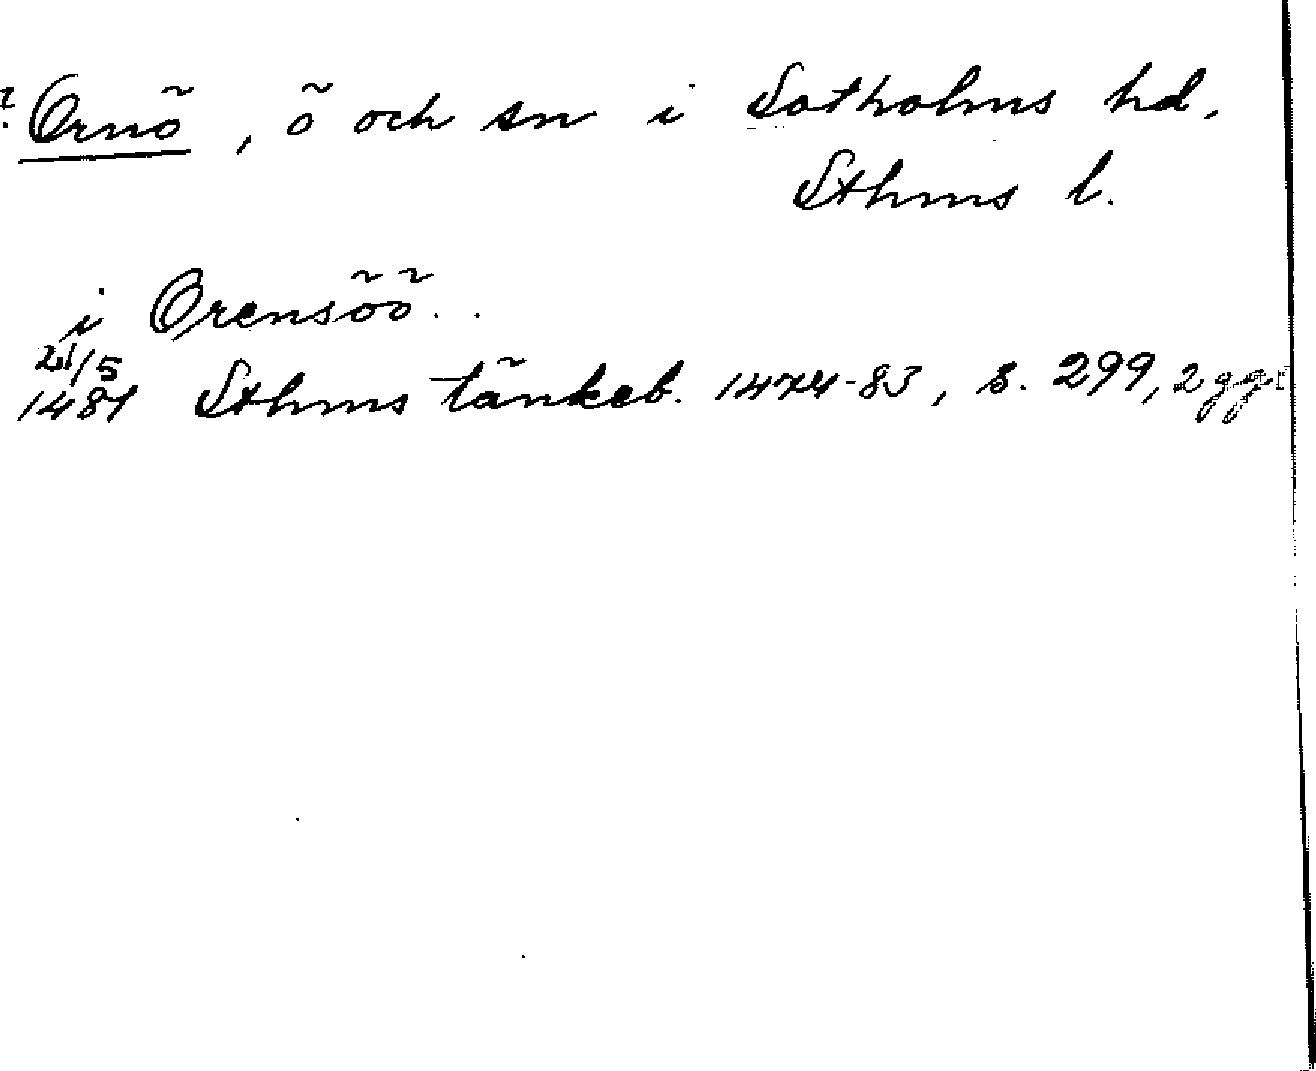 ? Ornö, ö och sn i Sotholms hd,
Sthms l.
i Orensöö..
21/5
1481 Sthms tänkeb. 1474-83, s. 299, 2 ggr